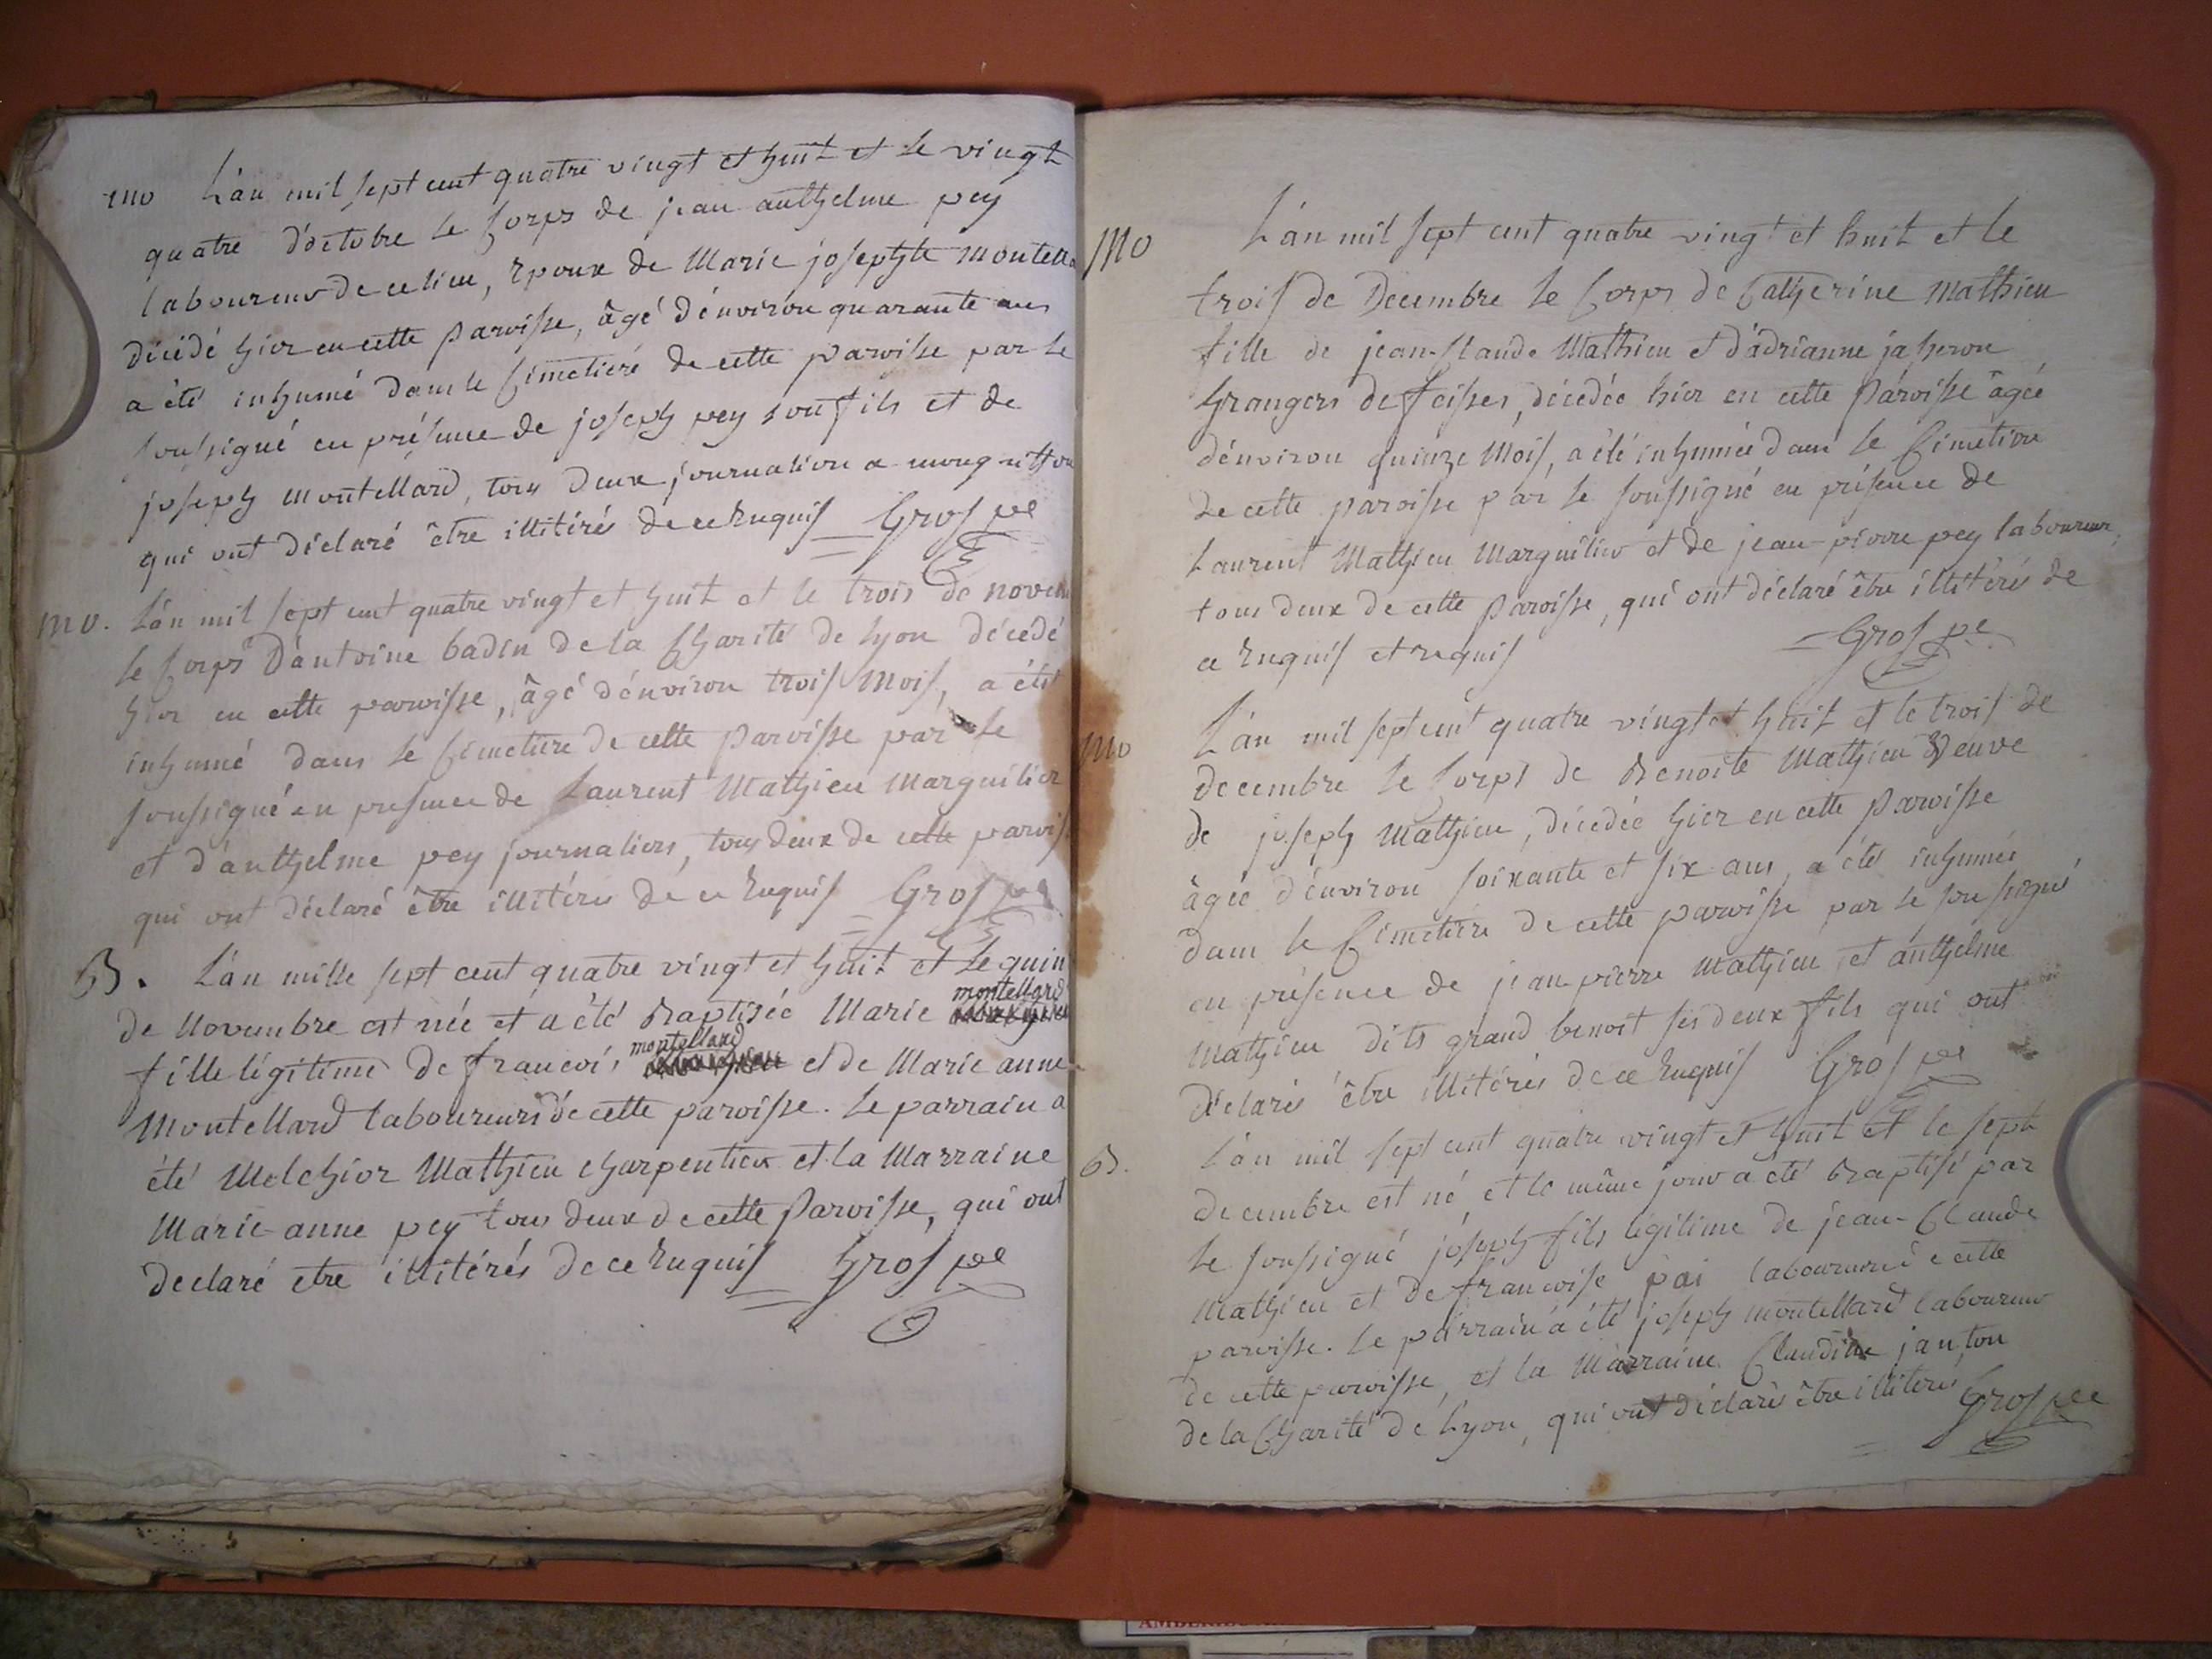 mo L'an mil sept cent quatre vingt et huit et le vingt
quatre d'octobre le Corps de jean anthelme pey
laboureur de ce lieu, Epoux de Marie josephte montella
décédé hier en cette paroisse, âgé d'environ quarante ans
a été inhumé dans le Cimetiere de cette paroisse par le
soussigné en présence de joseph pey son fils et de
joseph montellard, tous deux journaliers a
qui ont déclaré être illitérés de ce Enquis Gros pre
mo. L'an mil sept cent quatre vingt et huit et le trois de novem
le Corps D'antoine badin de la Charité de Lyon décédé
hier en cette paroisse, âgé d'environ trois Mois, a été
inhumé dans le Cimetiere de cette paroisse par le
soussigné en presence de Laurent Mathieu Marguilier
et d'anthelme pey journaliers, tous deux de cette parois
qui ont déclaré être illitérés de ce Enquis Gros pre
B. L'an mille sept cent quatre vingt et huit et le quin
de Novembre est née et a été Baptisée Marie montellard
fille légitime de francois montellard et de Marie anne
Montellard laboureurs de cette paroisse. le parrain a
été Melchior Mathieu charpentier et la Marraine
Marie anne pey tous deux de cette Paroisse, qui ont
declaré etre illitérés de ce Enquis Gros pre
mo L'an mil sept cent quatre vingt et huit et le
trois de Decembre le Corps de Catherine Mathieu
fille de jean-Claude Mathieu et d'adrianne jaseron
Grangers de feisses, décédée hier en cette Paroisse âgée
d'environ quinze Mois, a été inhumée dans le Cimetiere
de cette paroisse par le soussigné en présence de
Laurent Mathieu Marguilier et de jean-pierre pey laboureur,
tous deux de cette Paroisse, qui ont déclaré être illitérés de
ce Enquis et requis Gros pre
mo L'an mil sept cent quatre vingt et huit et le trois de
Decembre le Corps de Benoite Mathieu Veuve
de joseph Mathieu, décédée hier en cette Paroisse
âgée d'environ soixante et six ans, a été inhumée
dans le Cimetiere de cette paroisse par le soussigné
en présence de jean pierre Mathieu et anthelme
Mathieu dits grand benoit ses deux fils qui ont
déclarés être illitérés de ce Enquis Gros pre
B. L'an mil sept cent quatre vingt et huit et le sept
Decembre est né, et le même jour a été Baptisé par
le soussigné joseph fils légitime de jean-Claude
Mathieu et de francoise pai laboureurs de cette
paroisse. le parrain a été joseph montellard laboureur
de cette paroisse, et la Marraine Claudine janton
de la Charité de Lyon, qui ont déclarés être illiterés Gros pre